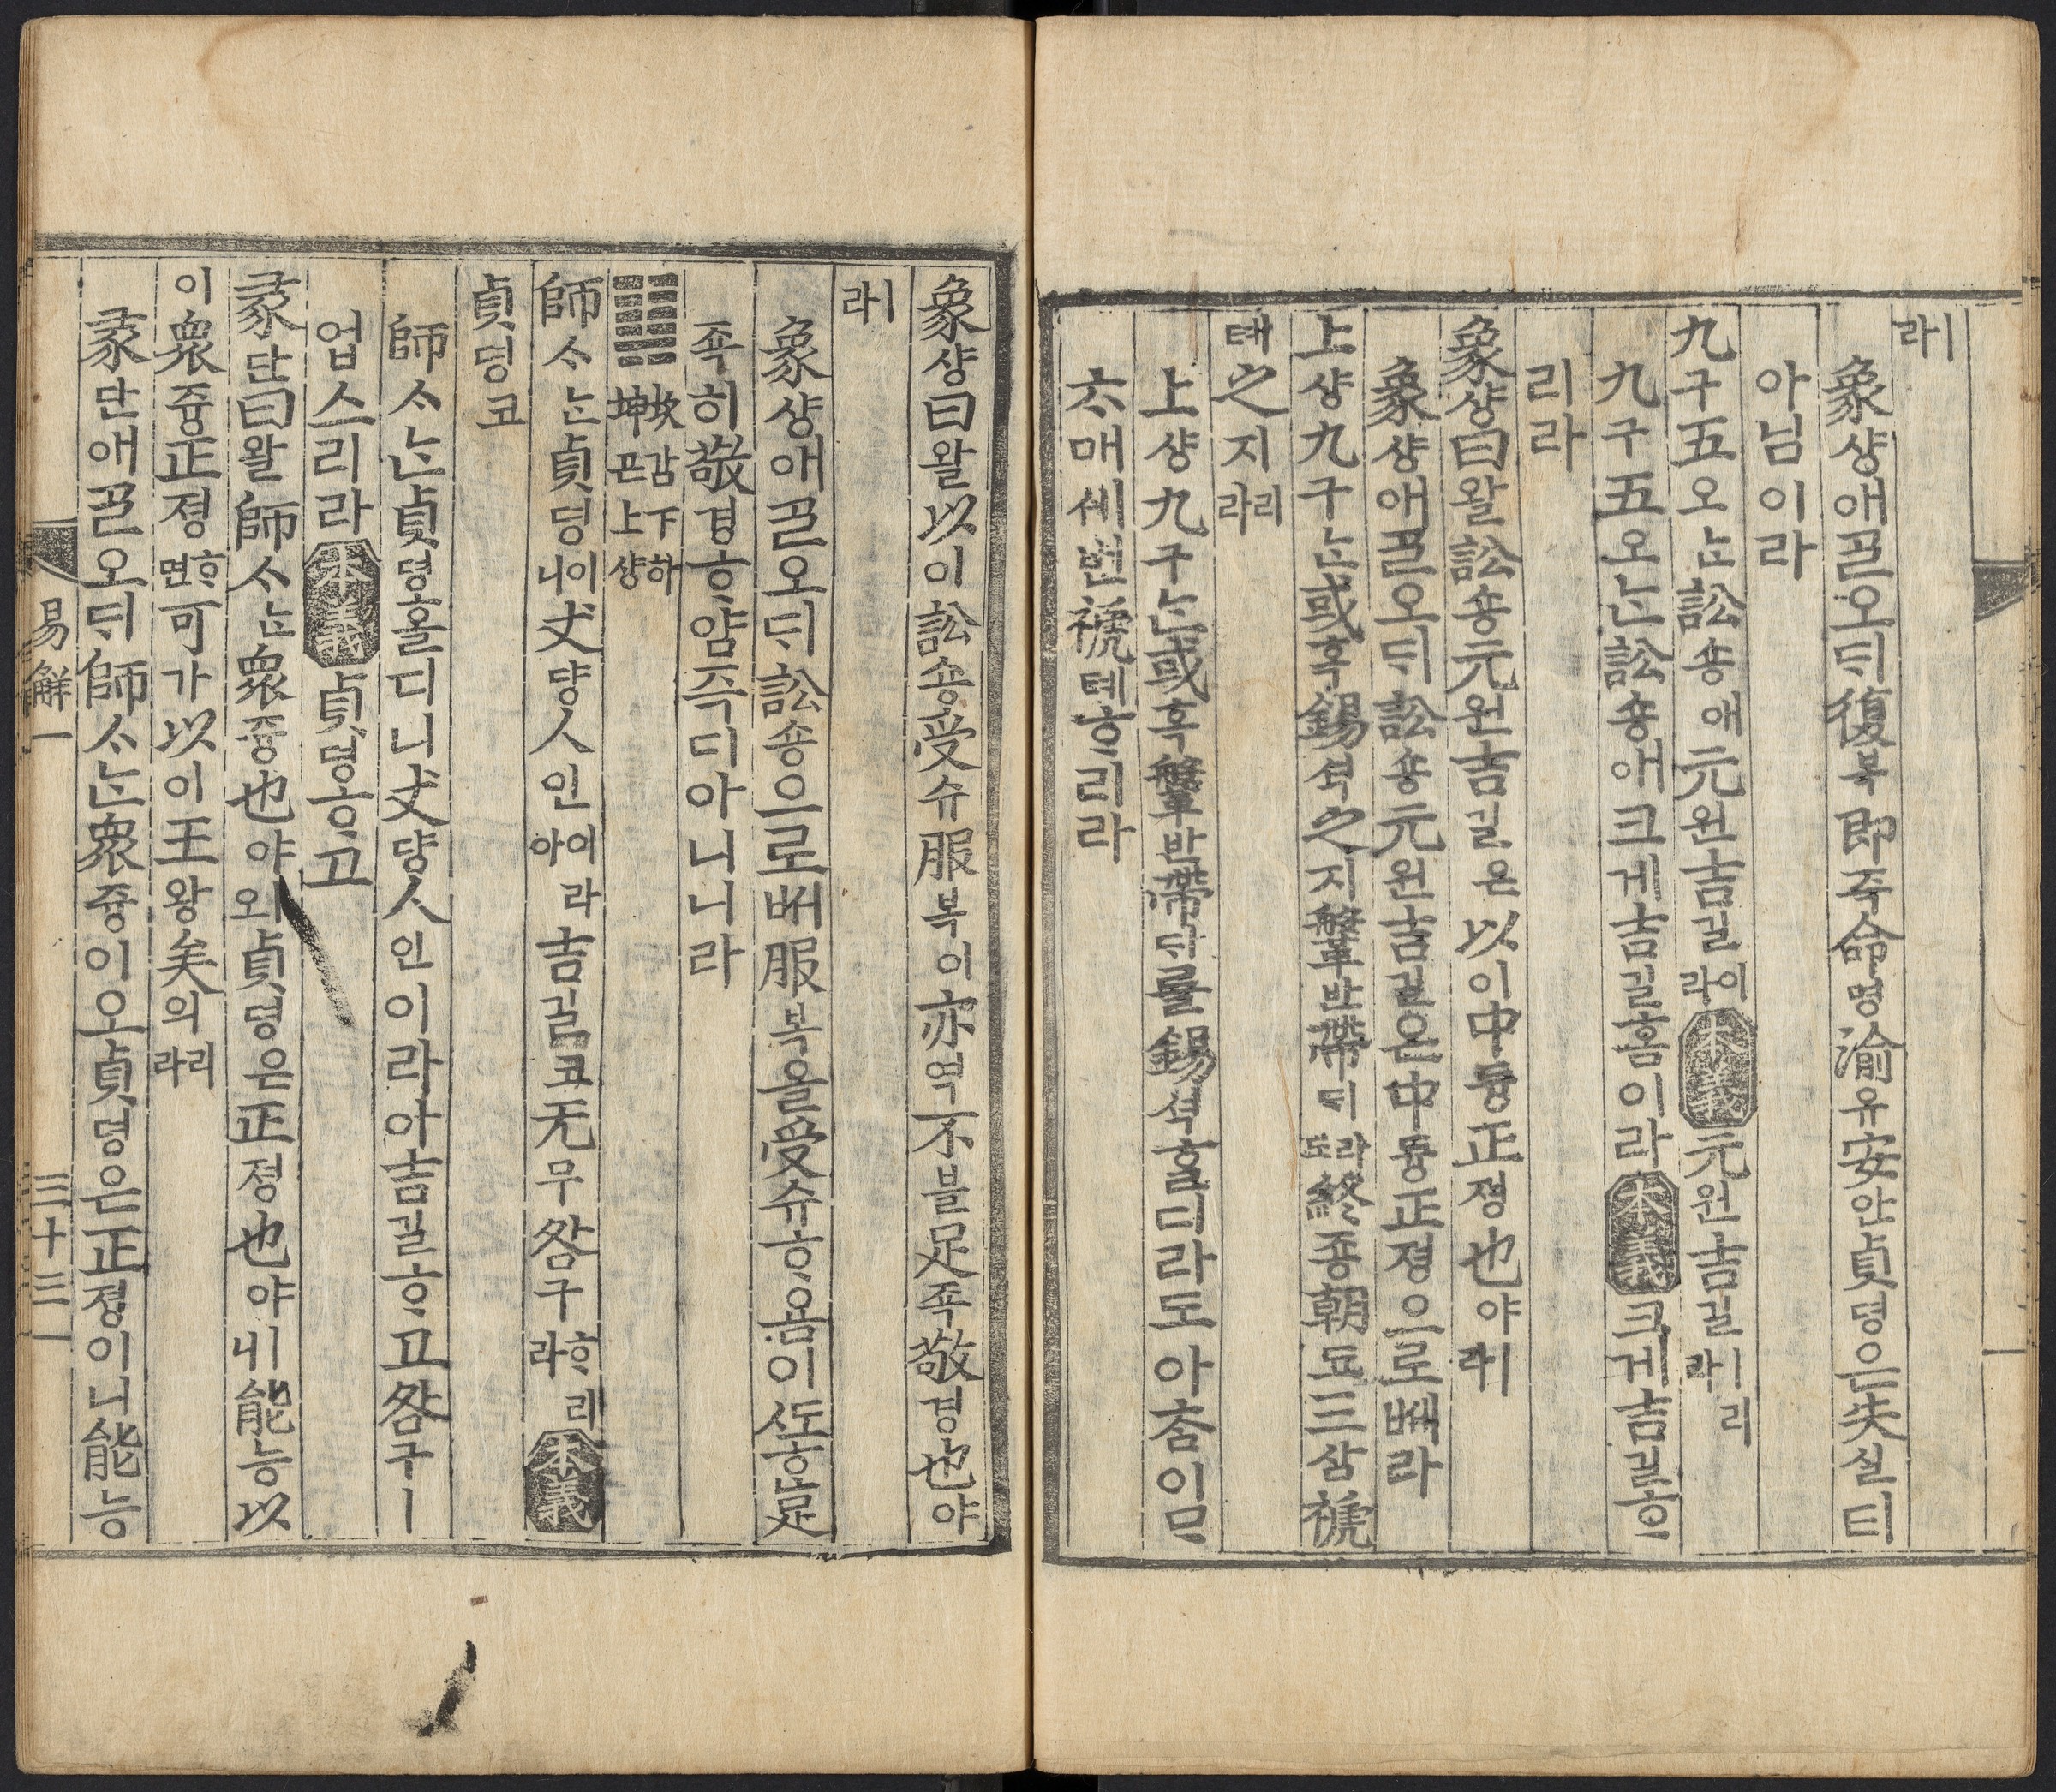 ㅣ라
象샹애ᄀᆞᆯ오ᄃᆡ復복即즉命명渝유安안貞뎡은失실티
아님이라
九구五오ᄂᆞᆫ訟숑애元원吉길이라本義元원吉길ㅣ리라
九구五오ᄂᆞᆫ訟숑애크게吉길홈이라本義크게吉길ᄒᆞ
리라
象샹曰왈訟숑元원吉길은以이中듕正졍也야ㅣ라
象샹애ᄀᆞᆯ오ᄃᆡ訟숑元원吉길은中듕正졍으로ᄡᅦ라
上샹九구ᄂᆞᆫ或혹錫셕之지鞶반帶ᄃᆡ라도終죵朝됴三삼褫
톄之지리라
上샹九구ᄂᆞᆫ或혹鞶반帶ᄃᆡ를錫셕홀디라도아ᄎᆞᆷ이ᄆᆞ
ᄎᆞ매세번褫톄ᄒᆞ리라
象샹曰왈以이訟숑受슈服복이亦역不블足죡敬경也야
ㅣ라
象샹애ᄀᆞᆯ오ᄃᆡ訟숑으로ᄡᅥ服복을受슈ᄒᆞ욤이ᄯᅩᄒᆞᆫ足
죡히敬경ᄒᆞ얌즉디아니니라
䷆坎감下하坤곤上샹
師ᄉᆞᄂᆞᆫ貞뎡이니丈댱人인이라아吉길코无무咎구ᄒᆞ리라本義
貞뎡코
師ᄉᆞᄂᆞᆫ貞뎡홀디니丈댱人인이라아吉길ᄒᆞ고咎구ㅣ
업스리라本義貞뎡ᄒᆞ고
彖단曰왈師ᄉᆞᄂᆞᆫ衆즁也야ㅣ오貞뎡은正졍也야ㅣ니能능以
이衆즁正졍ᄒᆞ면可가以이王왕矣의리라
彖단애ᄀᆞᆯ오ᄃᆡ師ᄉᆞᄂᆞᆫ衆즁이오貞뎡은正졍이니能능
易觧一 三十三